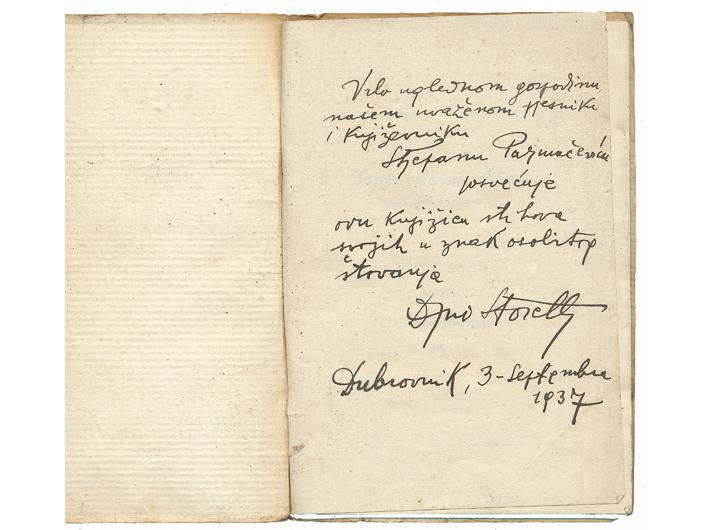 Vrlo uglednom gospodinu,
našem uvaženom pjesniku
i književniku
Stjepanu Parmačeviću
posvećuje
ovu knjižicu stihova
svojih u znak osobitog
štovanja
Dubrovnik, 3-septembra
1937